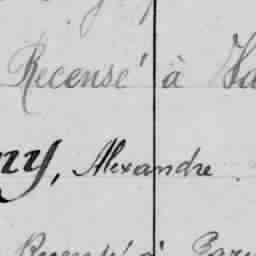 Recensé à
ny, Alexandre
Recensé à